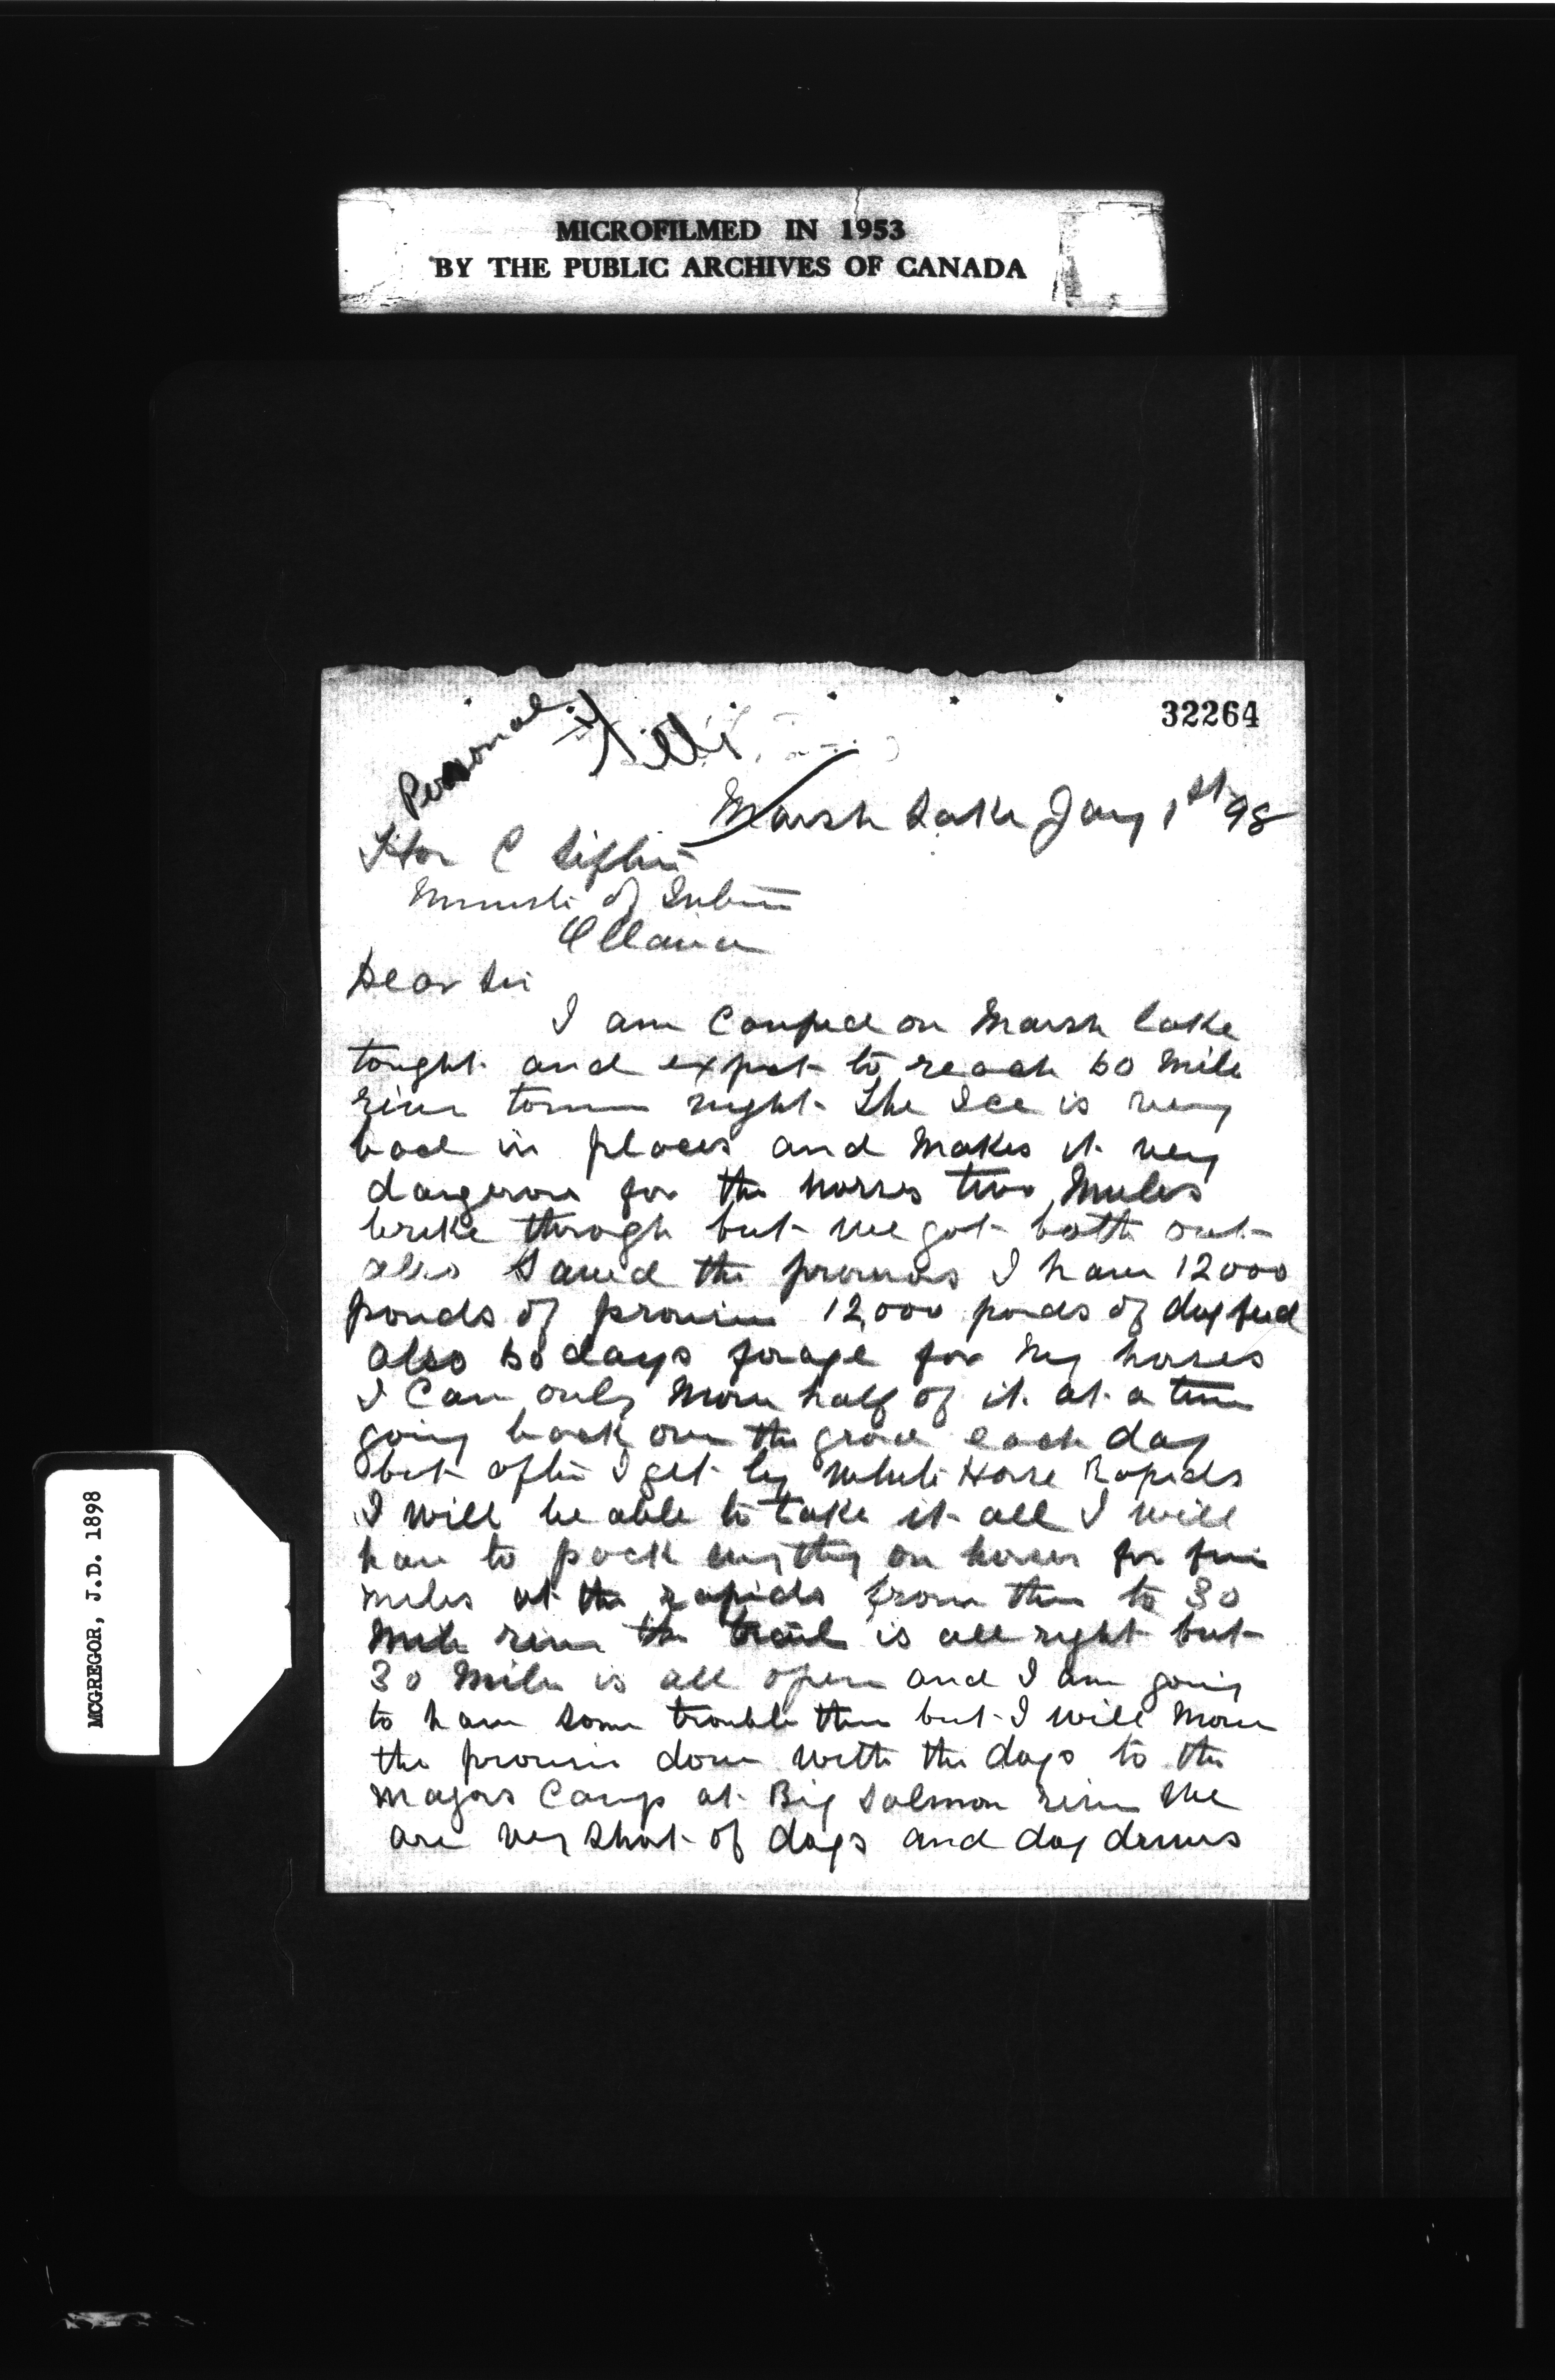 MICROFILMED IN 1953
BY THE PUBLIC ARCHIVES OF CANADA
32264
Personal
Marsh Lake Jany 1st 98
Hon C Sifton
Minister of Interior
Ottawa
Dear Sir
I am Camped on Marsh lake
tonight and expect to reach 50 Mile
river tomorrow night. The Ice is very
bad in places and makes it very
dangerous for the horses two Mules
broke through but we got both out
also saved the provisions I have 12000
pounds of provision 12,000 pounds of dog feed
also 50 days forage for my horses
I Can only Move half of it at a time
going back over the ground each day
but after I get by White Horse Rapids
I will be able to take it all I will
have to pack everything on horses for five
miles at the rapids from there to 30
Mile river the trail is all right but
30 Mile is all open and I am going
to have some trouble there but I will Move
the provision down with the dogs to the
Majors Camp at Big Salmon river We
are very short of dogs and dog drivers
MCGREGOR, J.D. 1898